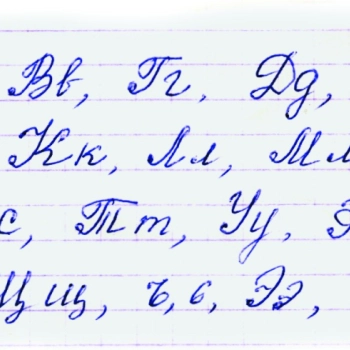 Вв, Гг, Дд,
Кк, Лл, Мм
с, Тт, Уу,
Щщ, ъ, ь, Ээ,